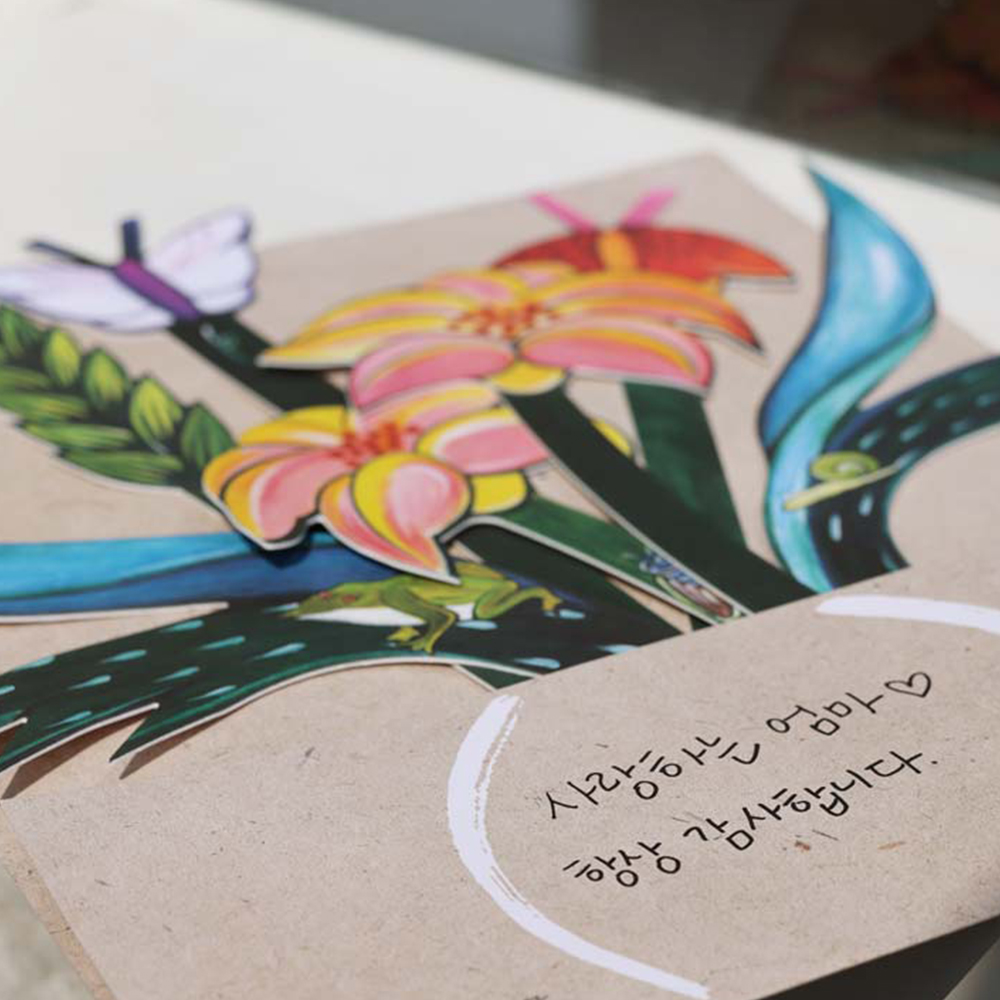 사랑하는 엄마♡
항상 감사합니다.